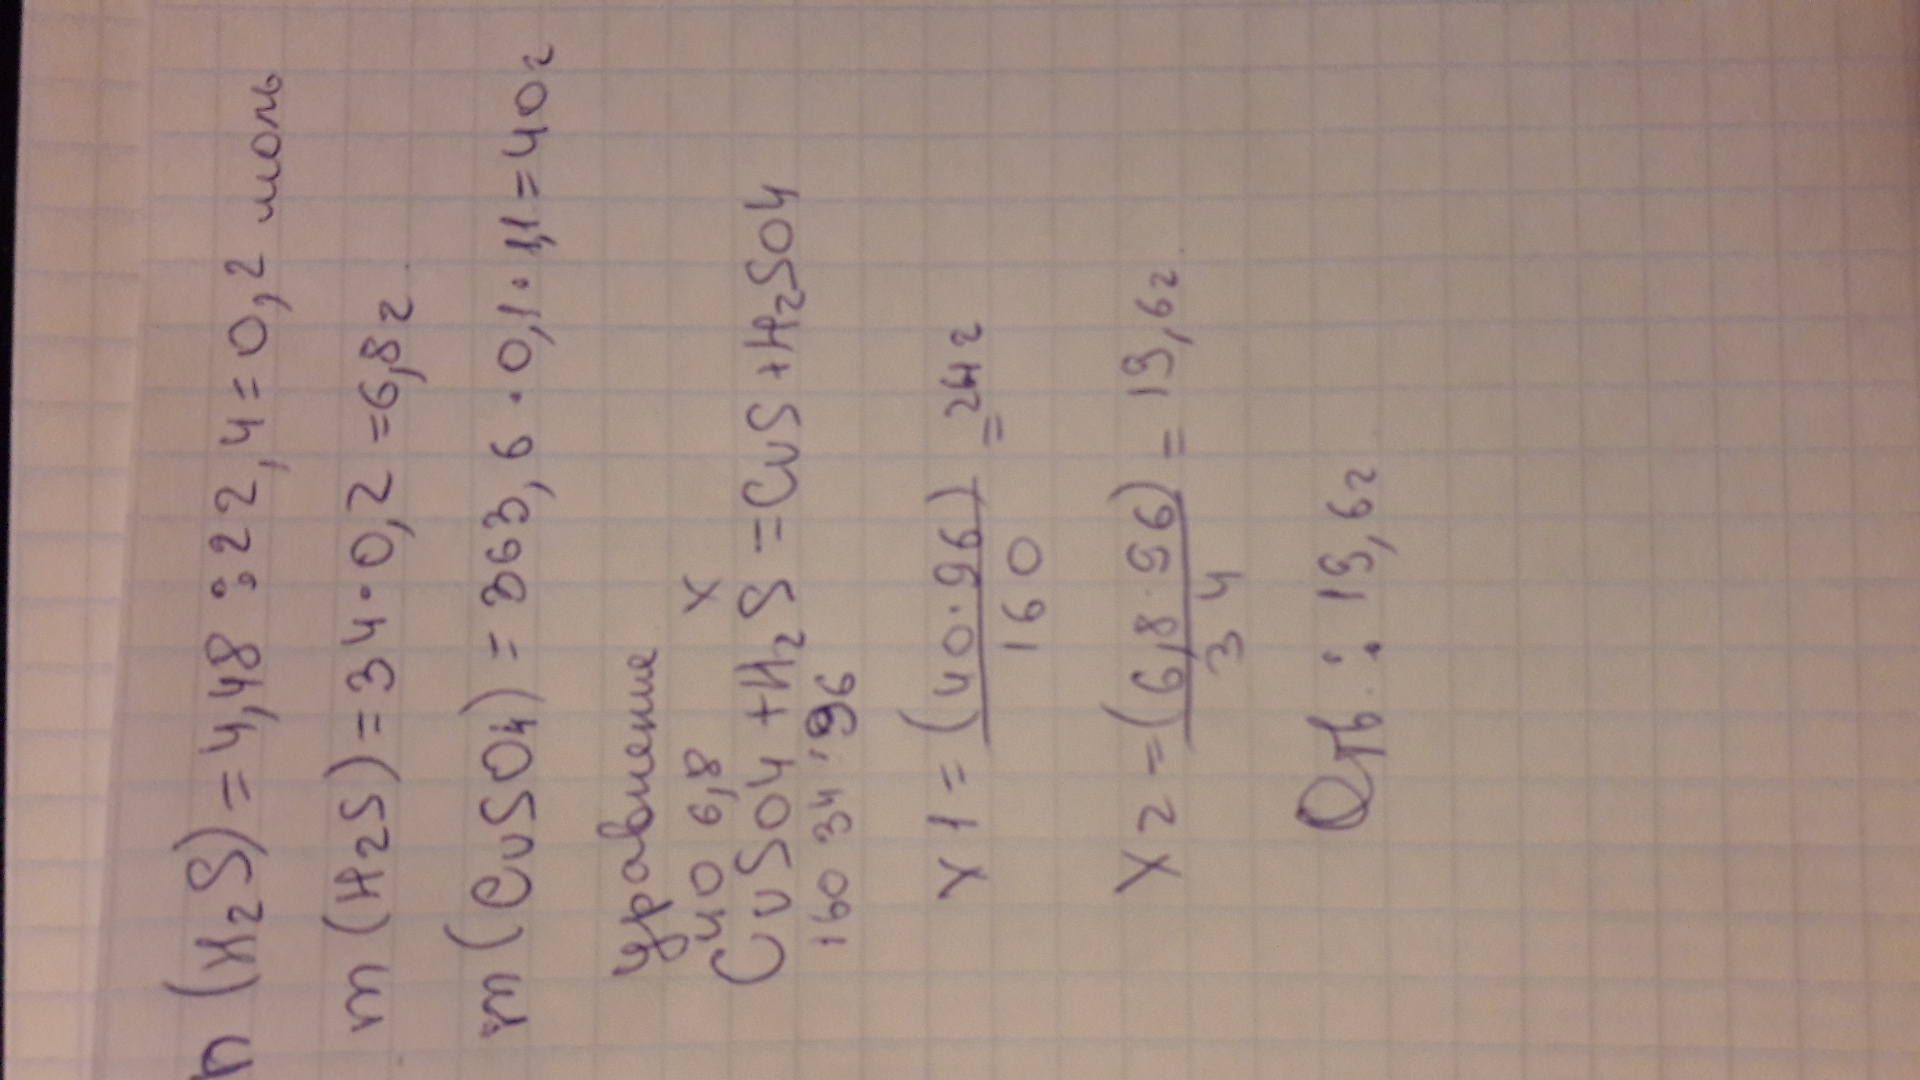 n (H2S) = 4,48 : 22,4 = 0,2 моль
m (H2S) = 34 · 0,2 = 6,8 г
m (CuSO4) = 363,6 · 0,1 · 1,1 = 40 г
уравнение
40 6,8 x
CuSO4 + H2S = CuS + H2SO4
160 34 96
x1 = (40·96) / 160 = 24 г
x2 = (6,8·96) / 34 = 19,6 г
Отв : 19,6 г